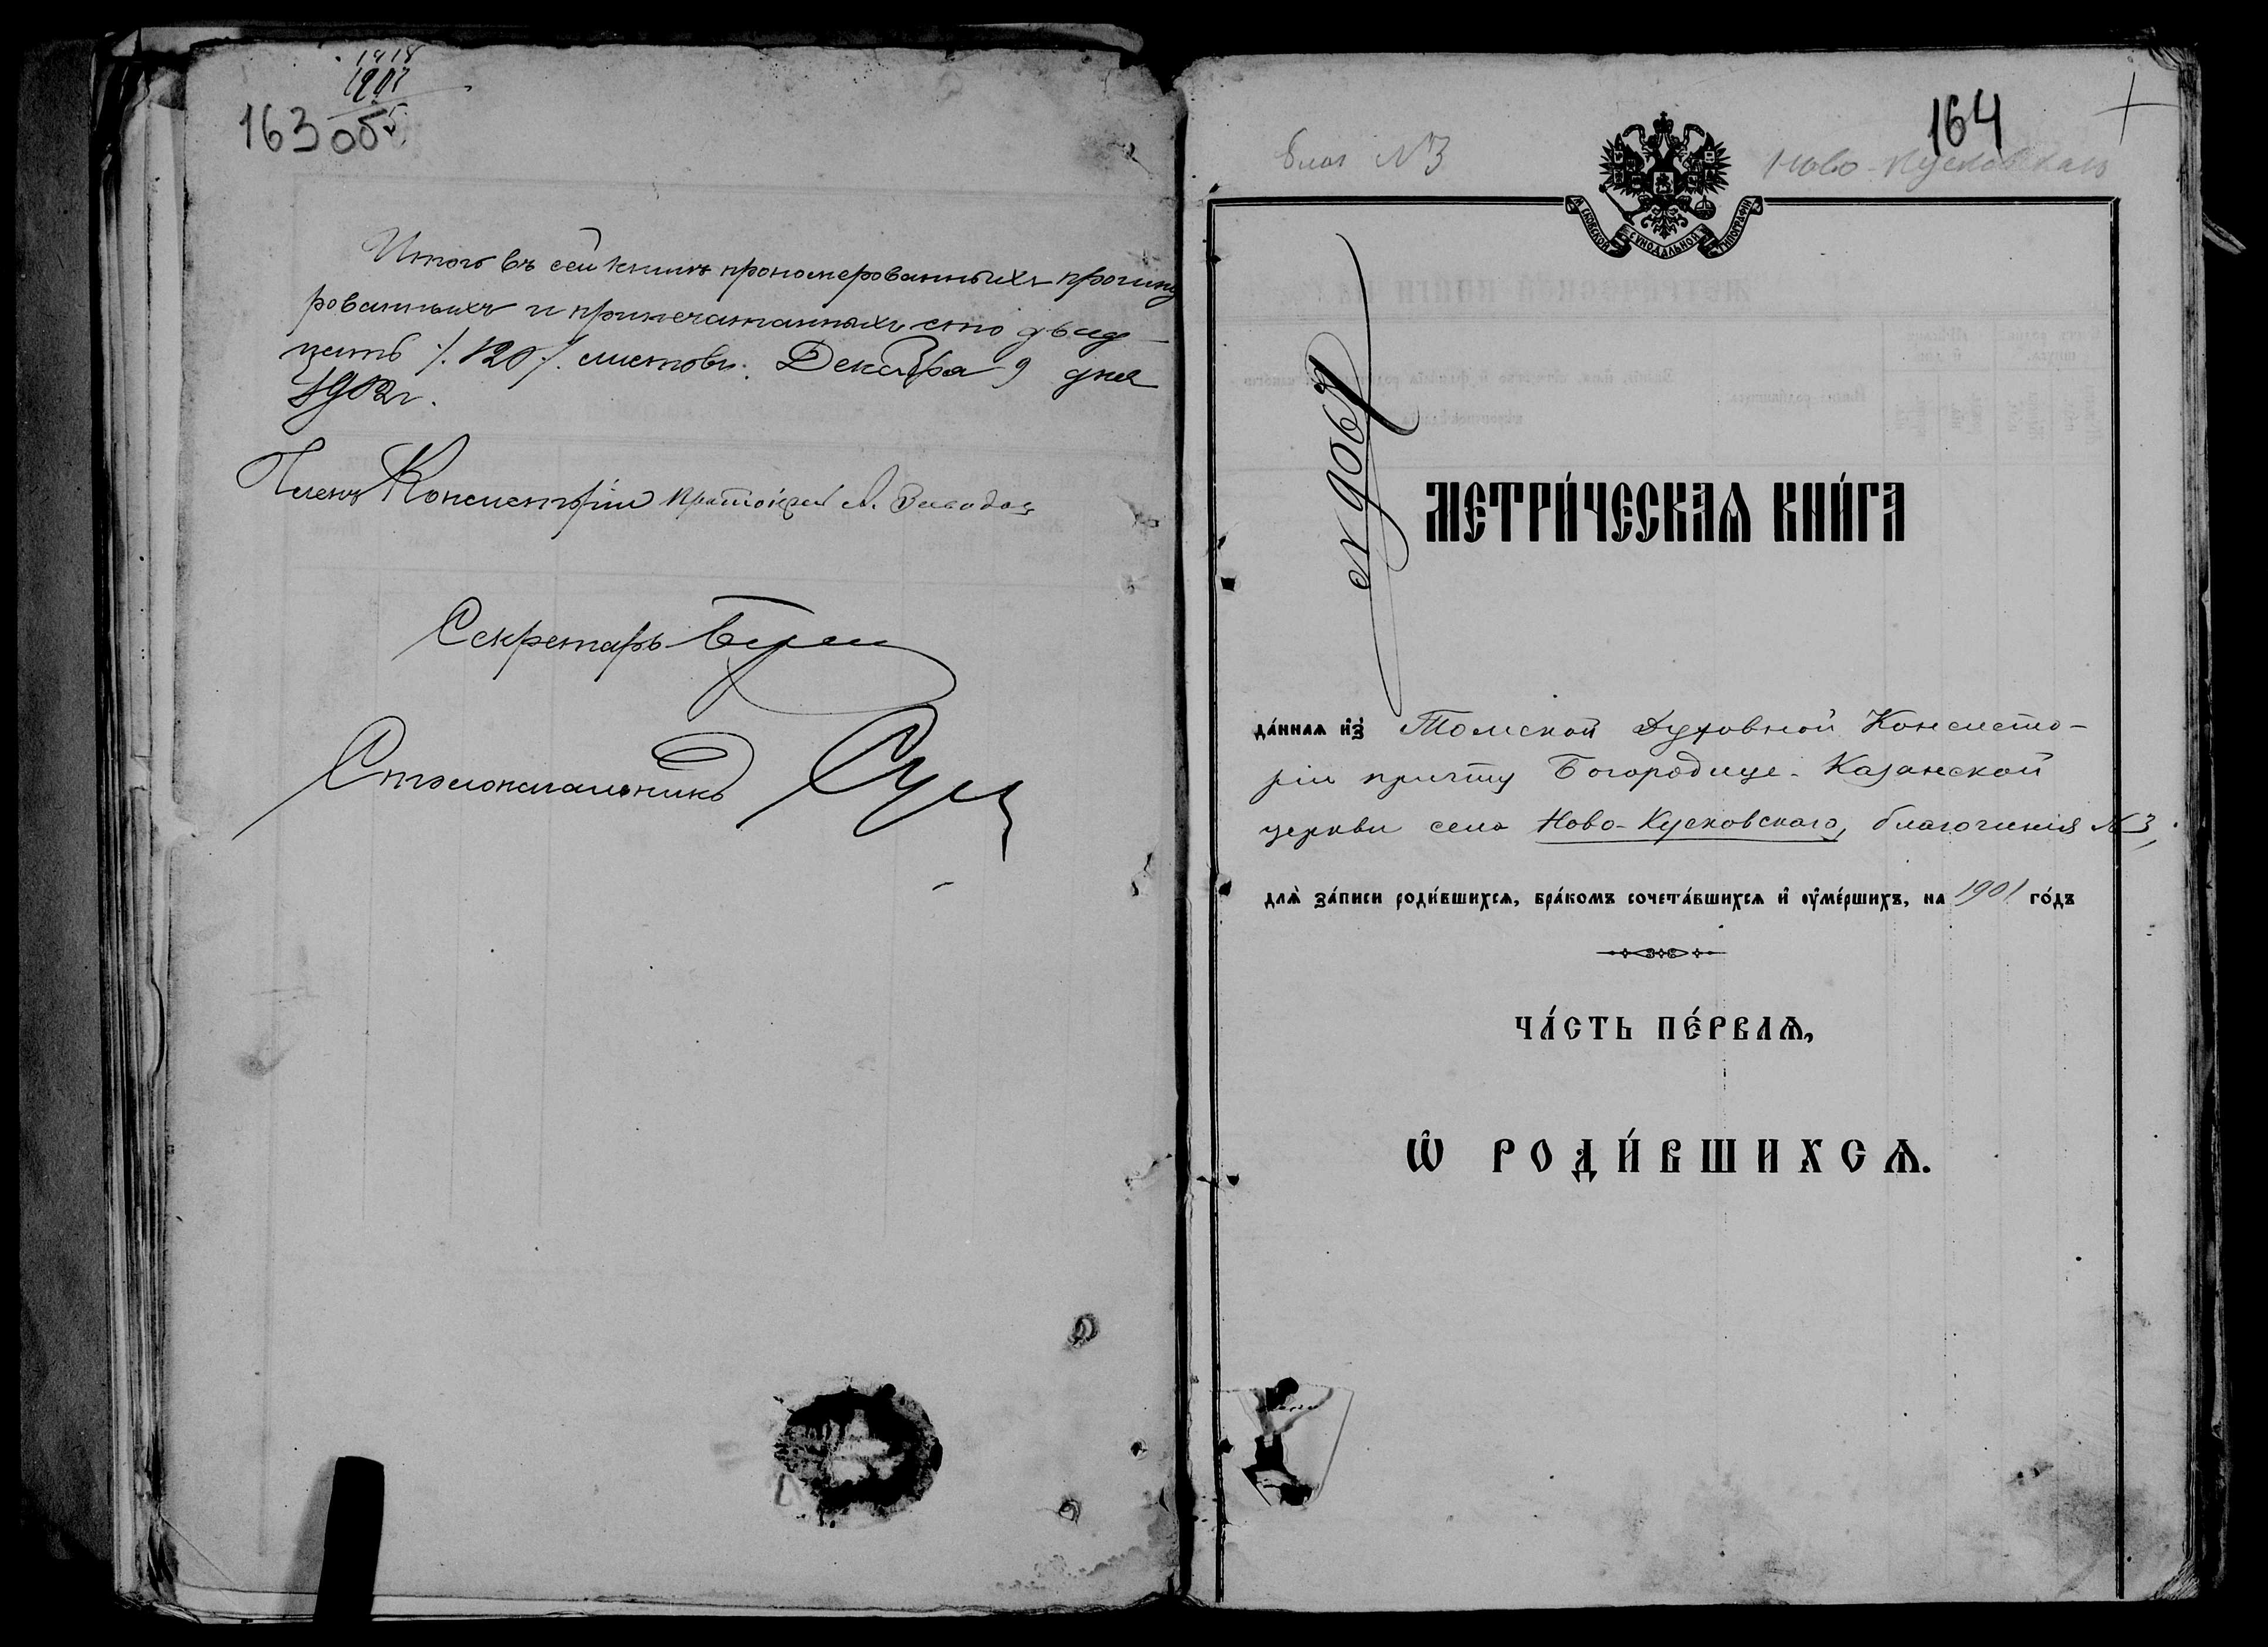 163 об
Итого въ сей книгѣ прономерованныхъ прошну
рованныхъ и припечатанныхъ сто двад
цать /.120/. листовъ. Декабря 9 дня
1902 г.
Членъ Консисторіи Протоіерей А. Заводов
Секретарь
Столоначальникъ
164
Благ №3
Ново-Кусковская
МОСКОВСКОЙ СѴНОДАЛЬНОЙ ТИПОГРАФІИ
МЕТРИ́ЧЕСКАѦ КНИ́ГА
да́ннаѧ из̾ Томской Духовной Консисто-
ріи причту Богородице-Казанской
церкви села Ново-Кусковскаго, благочинія №3,
длѧ̀ за́писи роди́вшихсѧ, бра́комъ сочета́вшихсѧ и҆ ᲂу҆ме́ршихъ, на 1901 го́дъ
ЧА́СТЬ ПЕ́РВАѦ,
Ѡ҆ РОДИ́ВШИХСѦ.